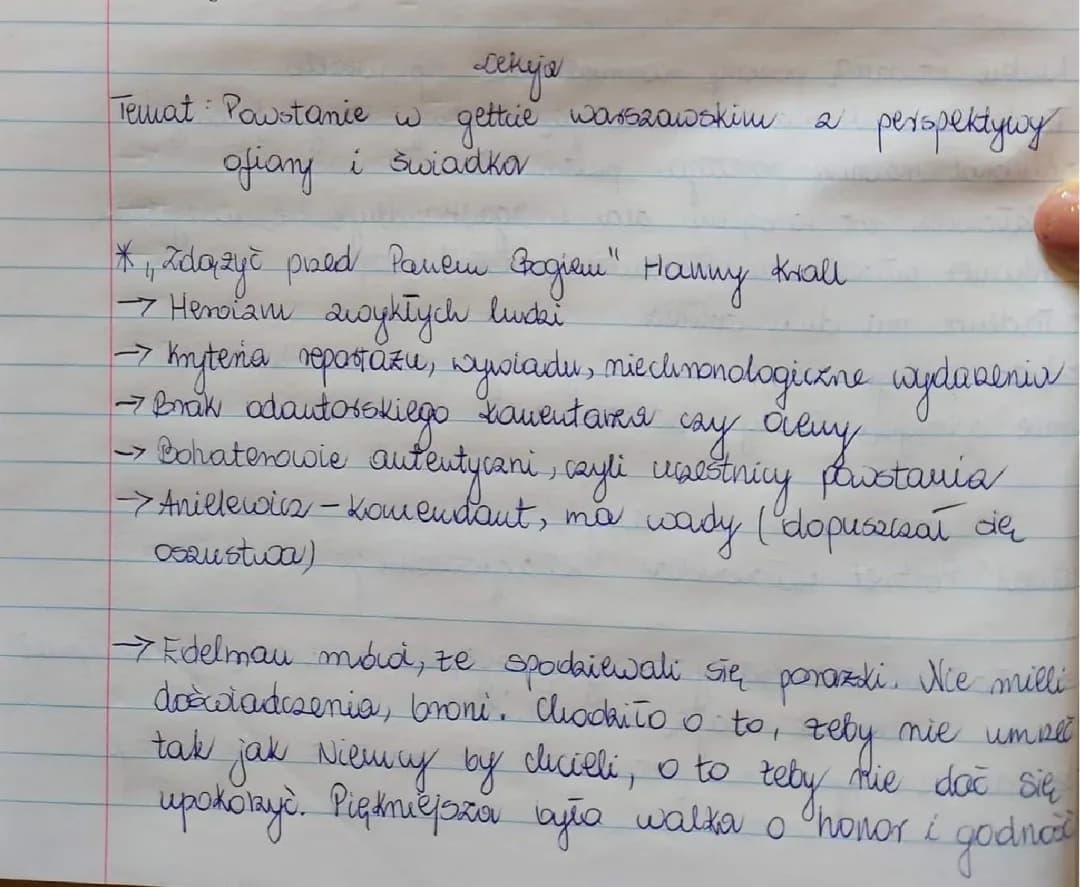 Lekcja
Temat: Powstanie w getcie warszawskim z perspektywy
ofiary i świadka
* „Zdążyć przed Panem Bogiem" Hanny Krall
→ Heroizm zwykłych ludzi
→ Kryteria reportażu, wywiadu, niechronologiczne wydarzenia
→ Brak odautorskiego komentarza czy oceny
→ Bohaterowie autentyczni, czyli uczestnicy powstania
→ Anielewicz – komendant, ma wady (dopuszczał się
oszustwa)
→ Edelman mówi, że spodziewali się porażki. Nie mieli
doświadczenia, broni. Chodziło o to, żeby nie umrzeć
tak jak Niemcy by chcieli, o to żeby nie dać się
upokorzyć. Piękniejsza była walka o honor i godność